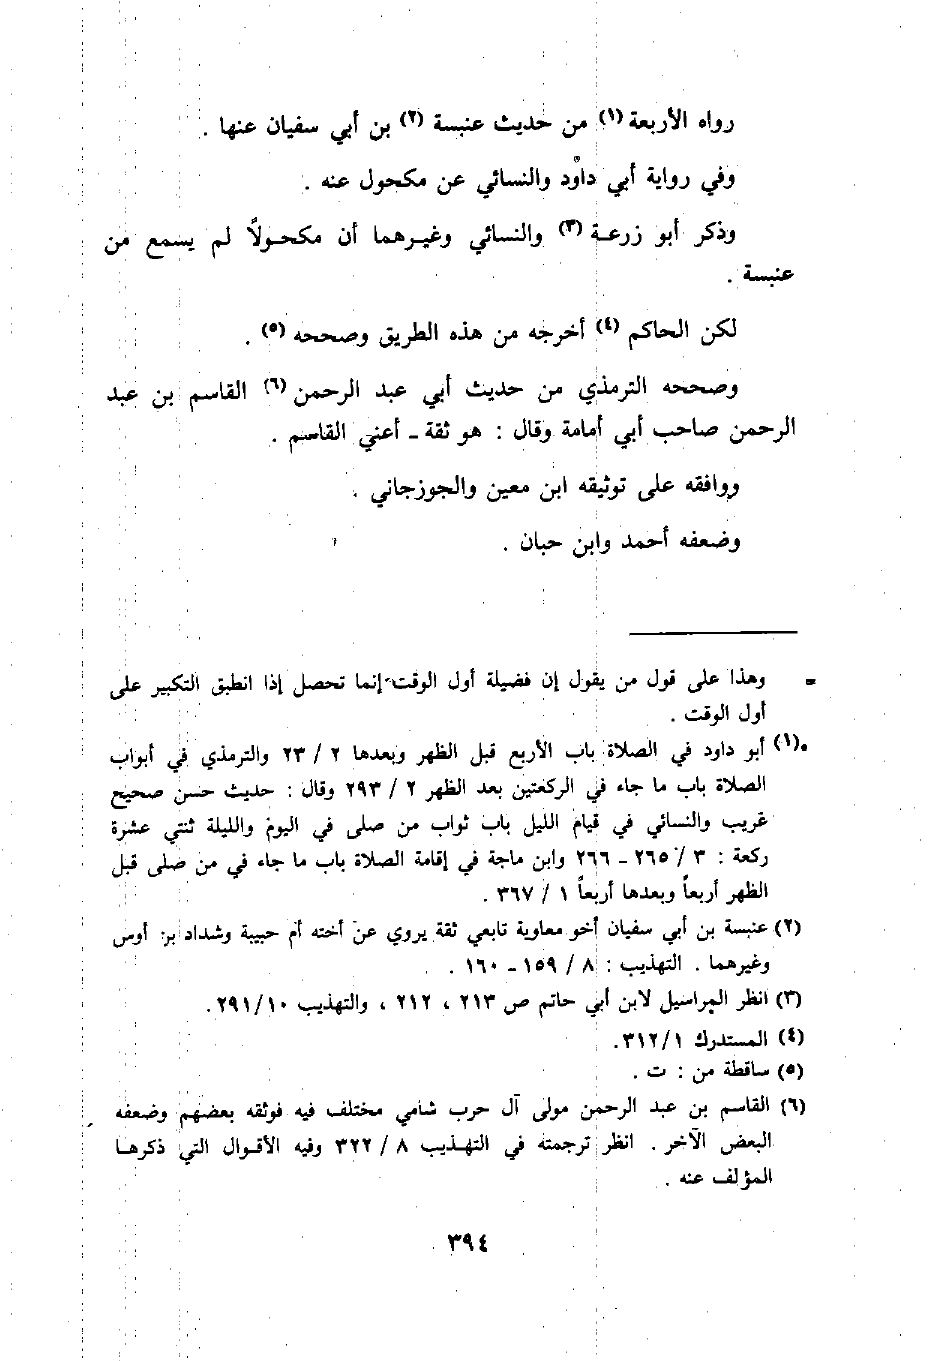 رواه الأربعة (١) من حديث عنبسة (٢) بن أبي سفيان عنها .
وفي رواية أبي داود والنسائي عن مكحول عنه .
وذكر أبو زرعة (٣) والنسائي وغيرهما أن مكحولاً لم يسمع من
عنبسة .
لكن الحاكم (٤) أخرجه من هذه الطريق وصححه (٥) .
وصححه الترمذي من حديث أبي عبد الرحمن (٦) القاسم بن عبد
الرحمن صاحب أبي أمامة وقال : هو ثقة ـ أعني القاسم .
ووافقه على توثيقه ابن معين والجوزجاني .
وضعفه أحمد وابن حبان .
= وهذا على قول من يقول إن فضيلة أول الوقت إنما تحصل إذا انطبق التكبير على
أول الوقت .
(١) أبو داود في الصلاة باب الأربع قبل الظهر وبعدها ٢ / ٢٣ والترمذي في أبواب
الصلاة باب ما جاء في الركعتين بعد الظهر ٢ / ٢٩٣ وقال : حديث حسن صحيح
غريب والنسائي في قيام الليل باب ثواب من صلى في اليوم والليلة ثنتي عشرة
ركعة : ٣ / ٢٦٥ ـ ٢٦٦ وابن ماجة في إقامة الصلاة باب ما جاء في من صلى قبل
الظهر أربعاً وبعدها أربعاً ١ / ٣٦٧ .
(٢) عنبسة بن أبي سفيان أخو معاوية تابعي ثقة يروي عن أخته أم حبيبة وشداد بن أوس
وغيرهما . التهذيب : ٨ / ١٥٩ ـ ١٦٠ .
(٣) انظر المراسيل لابن أبي حاتم ص ٢١٣ ، ٢١٢ ، والتهذيب ٢٩١/١٠ .
(٤) المستدرك ٣١٢/١ .
(٥) ساقطة من : ت .
(٦) القاسم بن عبد الرحمن مولى آل حرب شامي مختلف فيه فوثقه بعضهم وضعفه
البعض الآخر . انظر ترجمته في التهذيب ٨ / ٣٢٢ وفيه الأقوال التي ذكرها
المؤلف عنه .
٣٩٤